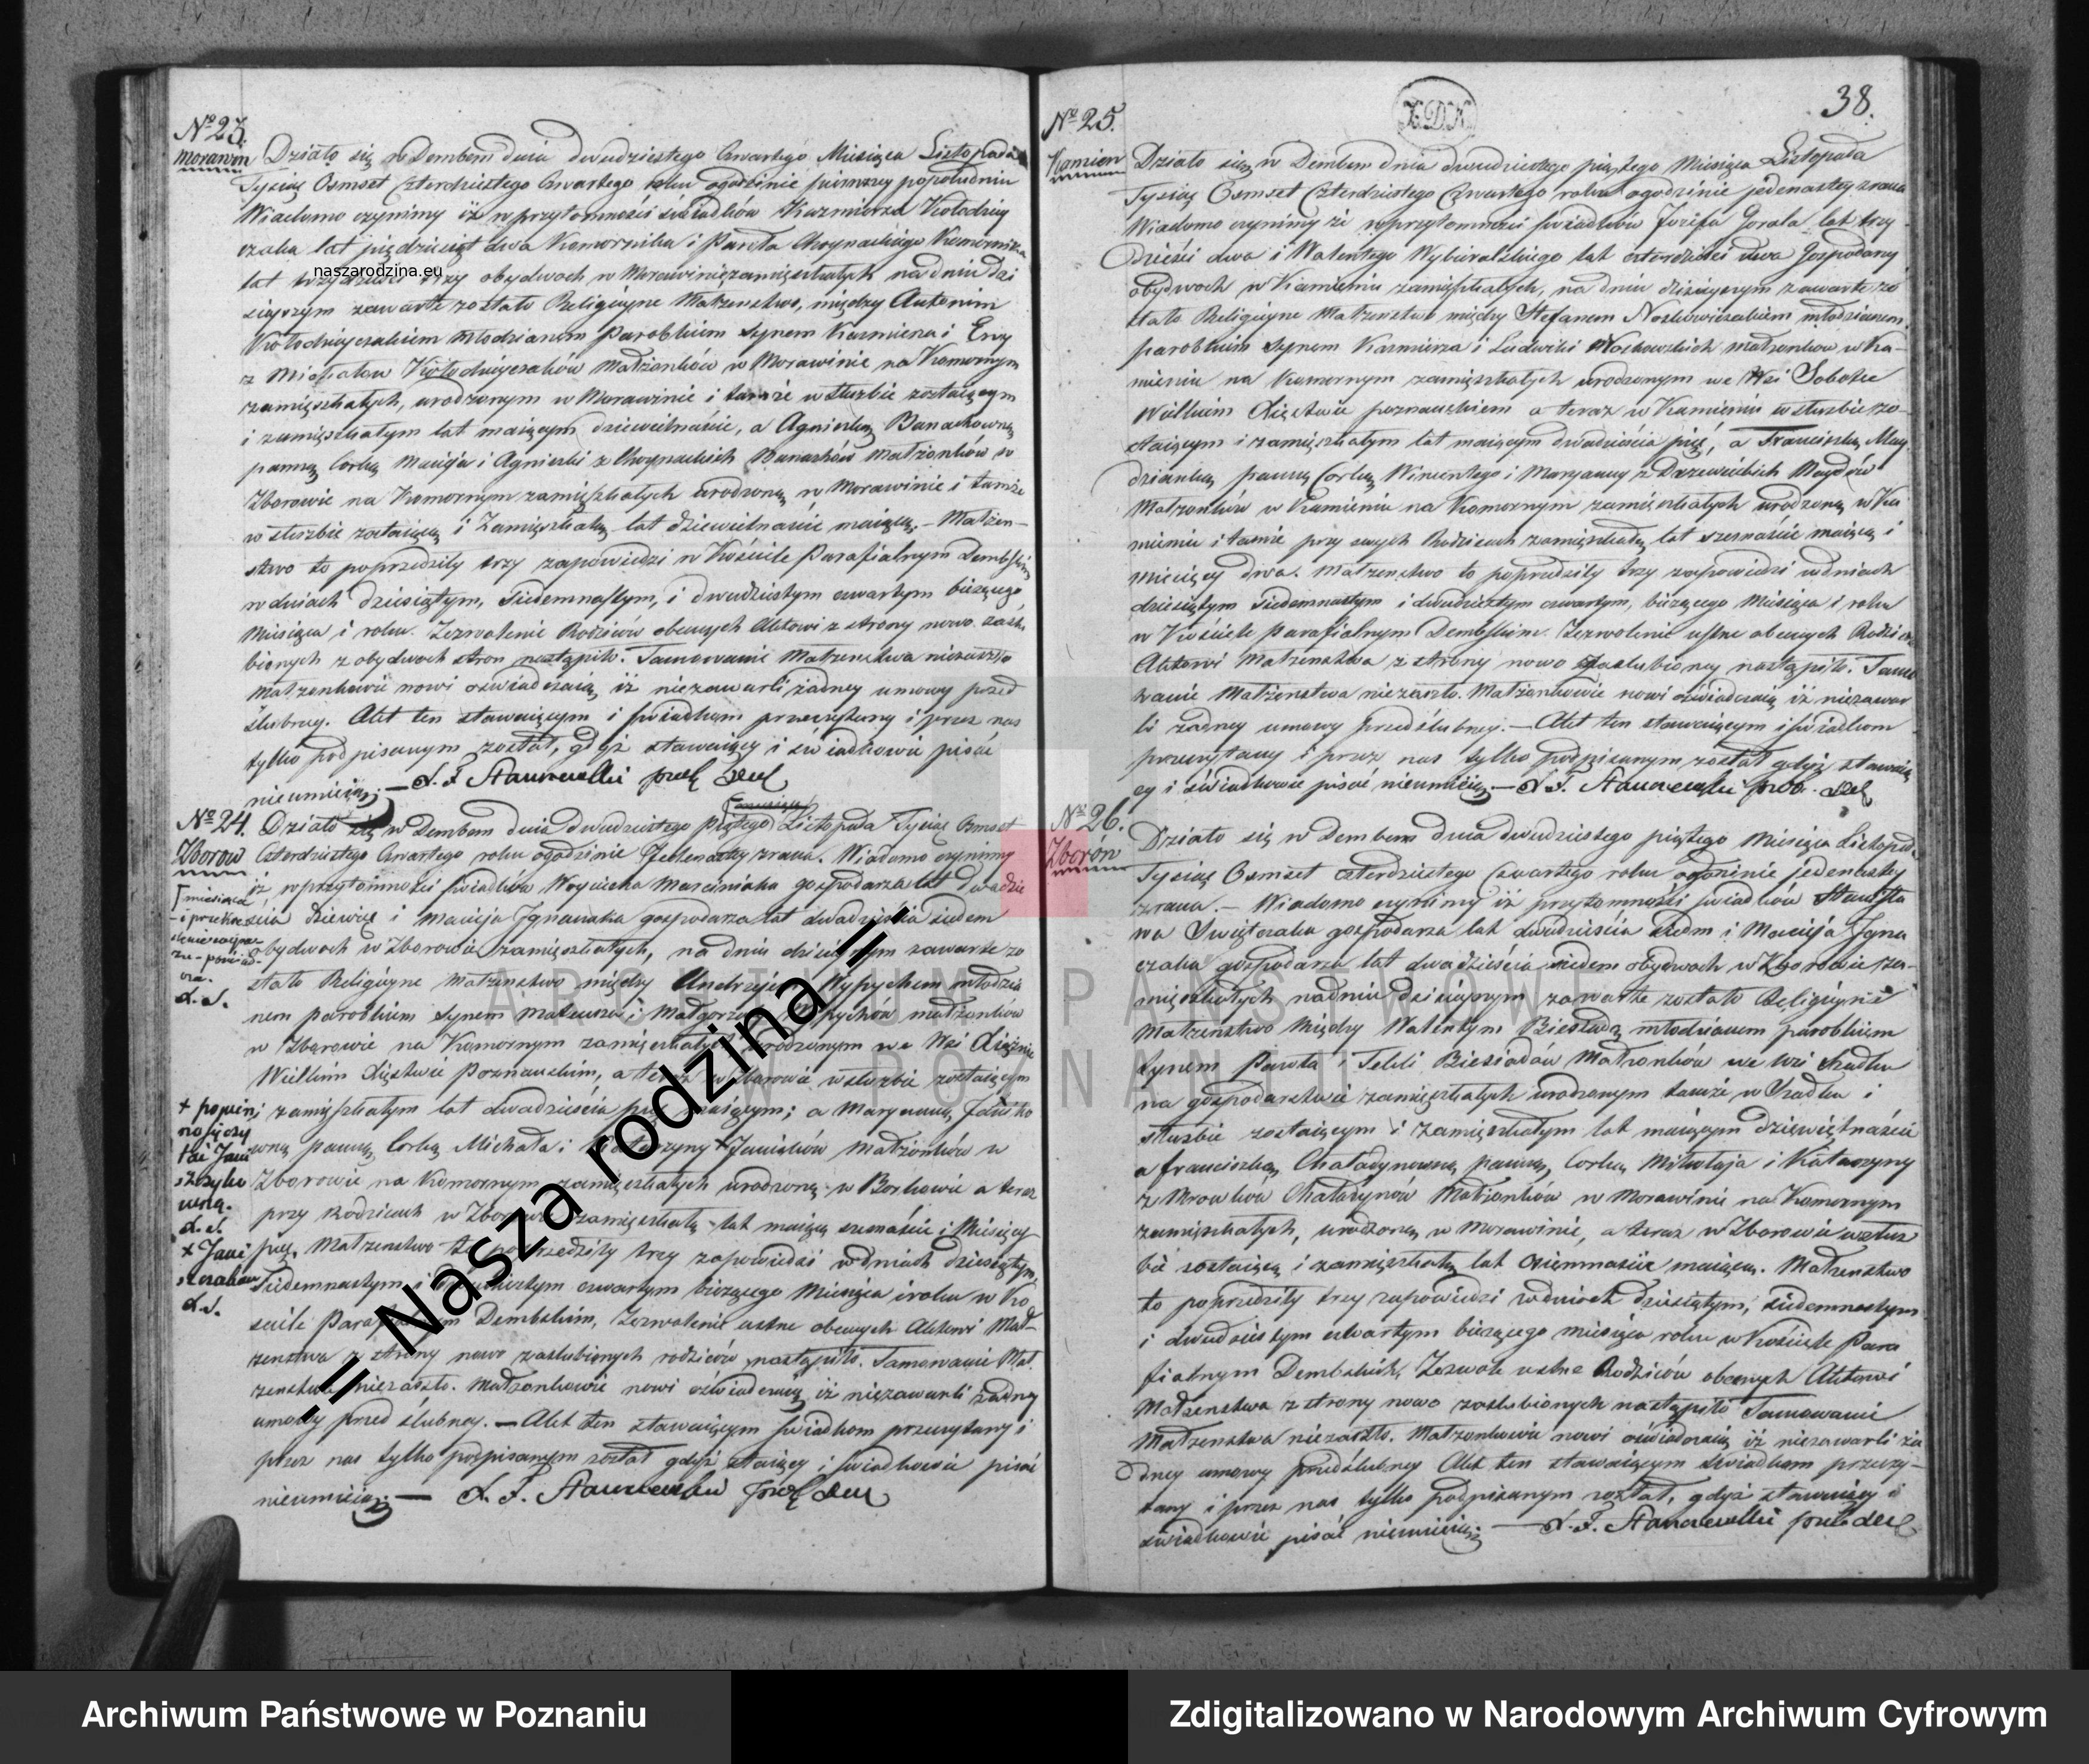 No 23.
Morawin
Działo się w Dembem dnia dwudziestego czwartego Miesiąca Listopada
Tysiąc Osmset Czterdziestego Czwartego roku ogodzinie pierwszey popołudniu
Wiadomo czynimy iż w przytomności świadków Kazmierza Kołodziey
czaka lat piędziesiąt dwa Komornika i Pawła Choynackiego Komornika
lat trzydzieści trzy obydwoch w Morawinie zamięszkałych na dniu dzi
sieyszym zawarte zostało Religiyne Małzenstwo, między Antonim
Kołodzieyczakiem Młodzianem Parobkiem Synem Kazmierza i Ewy
z Kołodzieyczaków Małżonków w Morawinie na Komornym
zamięszkałych, urodzonym w Morawinie i tamże w służbie zostaiącym
i zamięszkałym lat maiącym dziewietnaście, a Agnieszką Banachowną
panną Corką Macieja i Agnieszki z Choynackich Banachów Małżonków w
Zborowie na Komornym zamięszkałych urodzoną w Morawinie i tamże
w służbie zostaiącą i Zamięszkałą lat dziewietnaście maiącą. – Małżen-
stwo to poprzedziły trzy zapowiedzi w Kościele Parafialnym Dembskim
w dniach dziesiątym, Siedemnastym, i dwudziestym czwartym bieżącego
Miesiąca i roku. Zezwolenie Rodziców obecnych Aktowi z strony nowo zaślu
bionych z obydwoch stron nastąpiło. Tamowanie Małzenstwa niezaszło
Małzonkowie nowi oswiadczaią iż niezawarli żadney umowy przed
ślubney. Akt ten stawaiącym i świadkom przeczytany i przez nas
tylko podpisanym został, gdyż stawaiący i świadkowie pisać
nieumieią. –
No 24.
Zborow
Działo się w Dembem dnia dwudziestego piątego Listopada Tysiąc Osmset
Czterdziestego Czwartego roku ogodzinie Jedenastey zrana. Wiadomo czynimy
iż w przytomności świadków Woyciecha Marciniaka gospodarza lat dwadzie
ścia dziewięć i Macieja Ignaczaka gospodarza lat dwadzieścia siedem
obydwoch w Zborowie zamięszkałych, na dniu dzisieyszym zawarte zo
stało Religiyne Małzenstwo między Andrzejem Wypychem młodzia
nem parobkiem Synem Mateusza i Małgorzaty Wypychów małżonków
w Zborowie na Komornym zamięszkałych urodzonym we Wsi
Wielkim Xięstwie Poznanskim, a teraz w Zborowie w służbie zostaiącym
i zamięszkałym lat dwadzieścia pięć maiącym; a Maryanną
wną panną Corką Michała i Katarzyny + Małżonków w
Zborowie na Komornym zamięszkałych urodzoną w Borkowie a teraz
przy Rodzicach w Zborowie zamięszkałą lat maiącą i Miesięcy
pięć. Małzenstwo to poprzedziły trzy zapowiedzi w dniach dziesiątym,
Siedemnastym i dwudziestym czwartym bieżącego Miesiąca i roku w Ko
ściele Parafialnym Dembskim, Zezwolenie ustne obecnych Aktowi Mał-
zenstwa z strony nowo zaslubionych rodziców nastąpiło. Tamowanie Mał
zenstwa niezaszło. Małzonkowie nowi oświadczaią iż niezawarli żadney
umowy przed ślubney. – Akt ten stawaiącym świadkom przeczytany i
przez nas tylko podpisanym został gdyż staiący i świadkowie pisać
nieumieią. –
38.
No 25.
Kamien
Działo się w Dembem dnia dwudziestego piątego Miesiąca Listopada
Tysiąc Osmset Czterdziestego Czwartego roku ogodzinie jedenastey zrana
Wiadomo czynimy że w przytomności świadków Jozefa Gorala lat trzy
dzieści dwa i Walentego Wybieralskiego lat czterdzieści dwa Gospodarzy
obydwoch w Kamieniu zamięszkałych, na dniu dzisieyszym zawarte zo
stało Religiyne Małzenstwo między Stefanem młodzianem
parobkiem Synem Kazmierza i Ludwiki Noskowskich małzonkow w Ka-
mieniu na Komornym zamięszkałych urodzonym we Wsi Sobotce
Wielkim Xięstwie poznanskiem a teraz w Kamieniu w służbie zo-
staiącym i zamięszkałym lat maiącym dwadzieścia pięć, a Franciszką Mag
dzianką panną Corką Wincentego i Maryanny z Drzewieckich Magdów
Małzonków w Kamieniu na Komornym zamięszkałych urodzoną w Ka
mieniu i tamże przy swych Rodzicach zamięszkałą lat szesnaście maiącą i
miesięcy dwa. Małzenstwo to poprzedziły trzy zapowiedzi w dniach
dziesiątym siedemnastym i dwudziestym czwartym, bieżącego Miesiąca i roku
w Kościele parafialnym Dembskim. Zezwolenie ustne obecnych Rodziców
Aktowi Małzenstwa z strony nowo Zaslubioney nastąpiło. Tamo
wanie Małżenstwa niezaszło. Małżonkowie nowi oświadczaią iż niezawar
li żadney umowy przedślubney. – Akt ten stawaiącym i świadkom
przeczytany i przez nas tylko podpisanym został gdyż stawaią
cy i świadkowie pisać nieumieią. –
No 26.
Zborów
Działo się w Dembem dnia dwudziestego piątego Miesiąca Listopada
Tysiąc Osmset czterdziestego Czwartego roku ogodzinie jedenastey
zrana. – Wiadomo czynimy iż przytomności świadków Stanisła
wa gospodarza lat dwadzieścia siedm i Macieja Igna
czaka gospodarza lat dwadzieścia siedem obydwoch w Zborowie za-
mięszkałych na dniu dzisieyszym zawarte zostało Religiyne
Małzenstwo Między Walentym Biesiadą młodzianem parobkiem
Synem Pawła i Tekli Biesiadów Małzonków we wsi Szadku
na gospodarstwie zamięszkałych urodzonym tamże w Szadku i
służbie zostaiącym i zamięszkałym lat maiącym dziewiętnaście
a Franciszką Chaładynowną panną, Corką Mikołaja i Katarzyny
z Mrowków Chaładynów Małżonków w Morawinie na Komornym
zamięszkałych, urodzoną w Morawinie, a teraz w Zborowie w służ
bie zostaiącą i zamięszkałą lat osiemnaście maiącą. Małzenstwo
to poprzedziły trzy zapowiedzi w dniach dziesiątym, siedemnastym
i dwudziestym czwartym bieżącego miesiąca roku w Kościele Para
fialnym Dembskich, Zezwole ustne Rodziców obecnych Aktowi
Małzenstwa z strony nowo zaslubionych nastąpiło Tamowanie
Małzenstwa niezaszło. Małzonkowie nowi oświadczaią iż niezawarli ża
dney umowy przedślubney Akt ten stawaiącym świadkom przeczy-
tany i przez nas tylko podpisanym został, gdyż stawaiący i
świadkowie pisać nieumieią. –
naszarodzina.eu
-:: Nasza rodzina ::-
ARCHIWUM PAŃSTWOWE
W POZNANIU
Archiwum Państwowe w Poznaniu
Zdigitalizowano w Narodowym Archiwum Cyfrowym